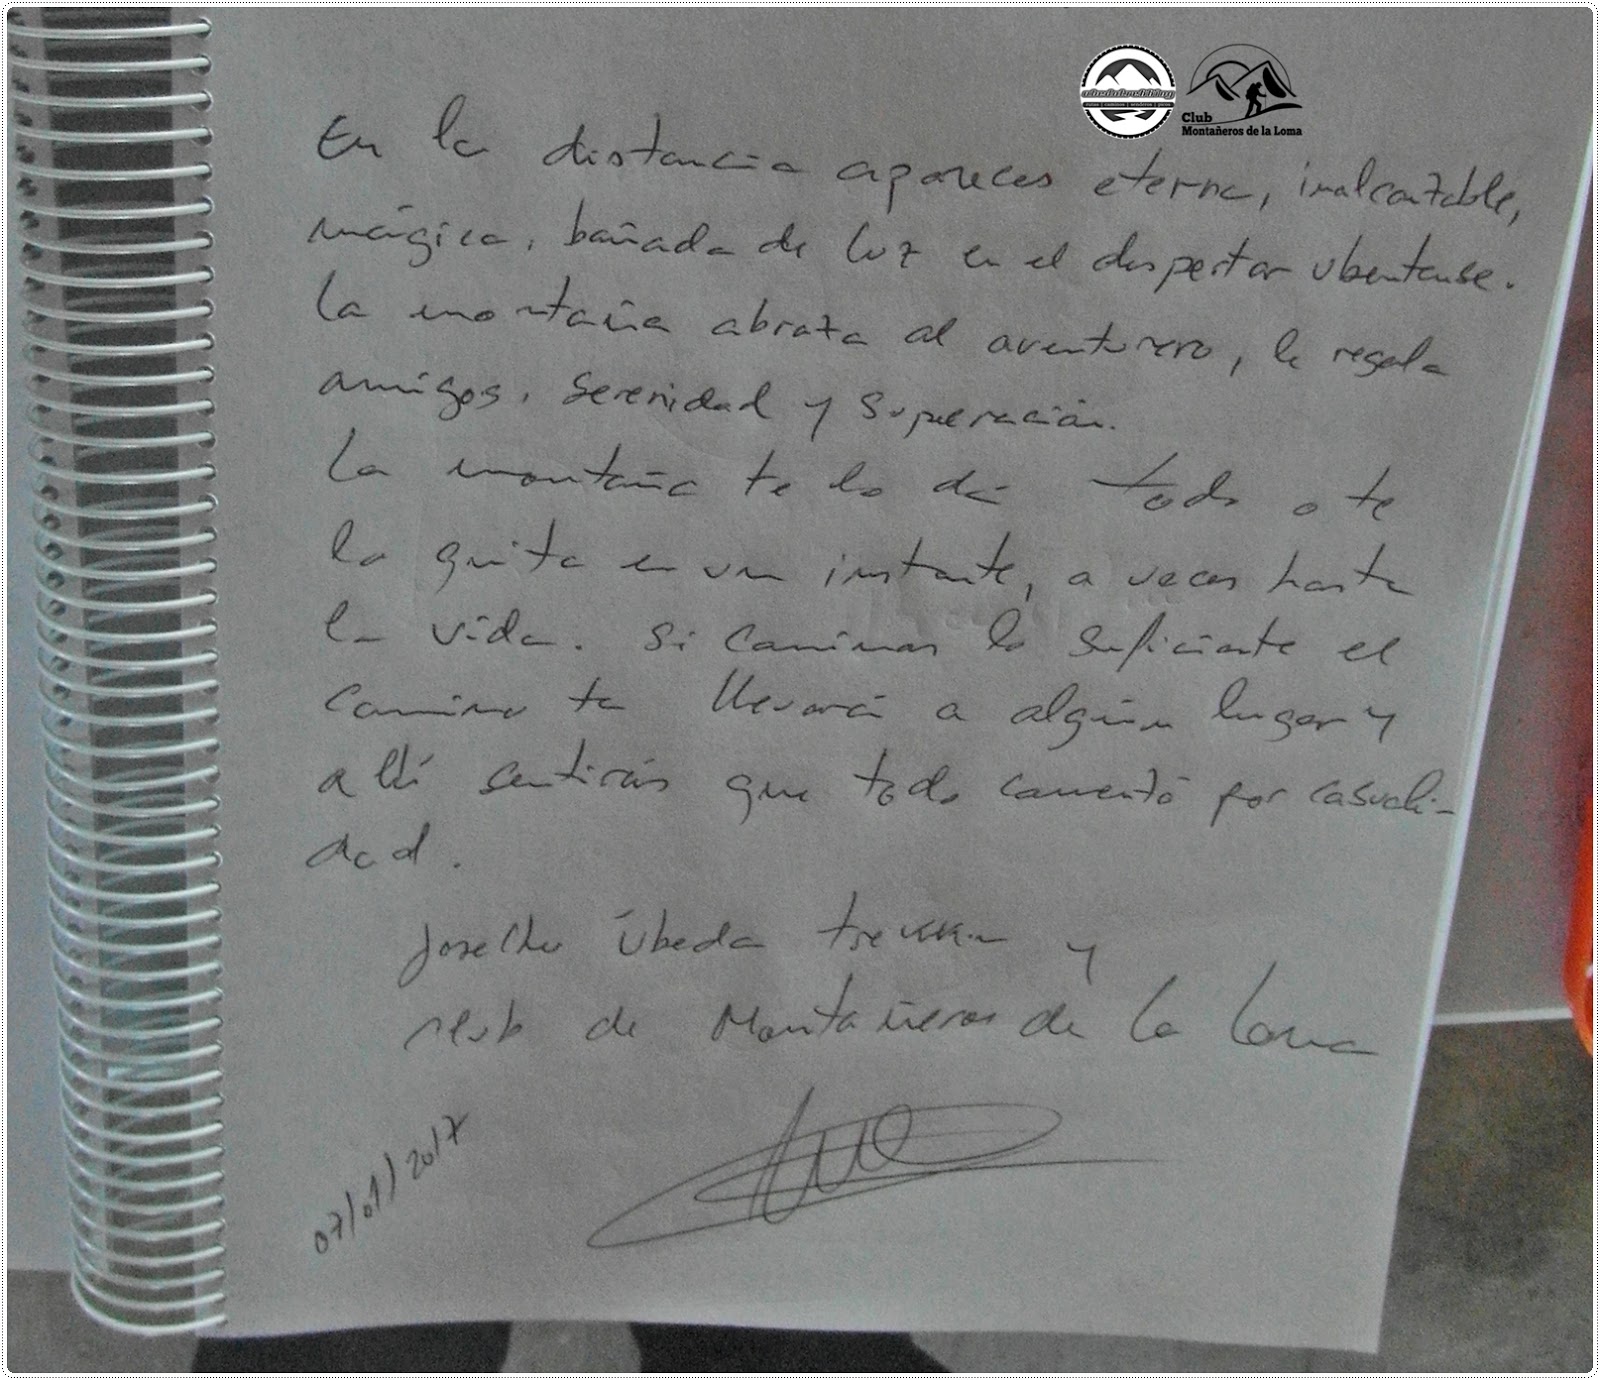 Club
Montañeros de la Loma
En la distancia apareces eterna, inalcanzable,
mágica, bañada de luz en el despertar ubentense.
La montaña abraza al aventurero, le regala
amigos, serenidad y superación.
La montaña te lo dá todo o te
lo quita en un instante, a veces hasta
la vida. Si caminas lo suficiente el
camino te llevará a algún lugar y
allí sentirás que todo comenzó por casuali-
dad.
Joselho Úbeda trekkin y
club de Montañeros de la Loma
07/01/2017